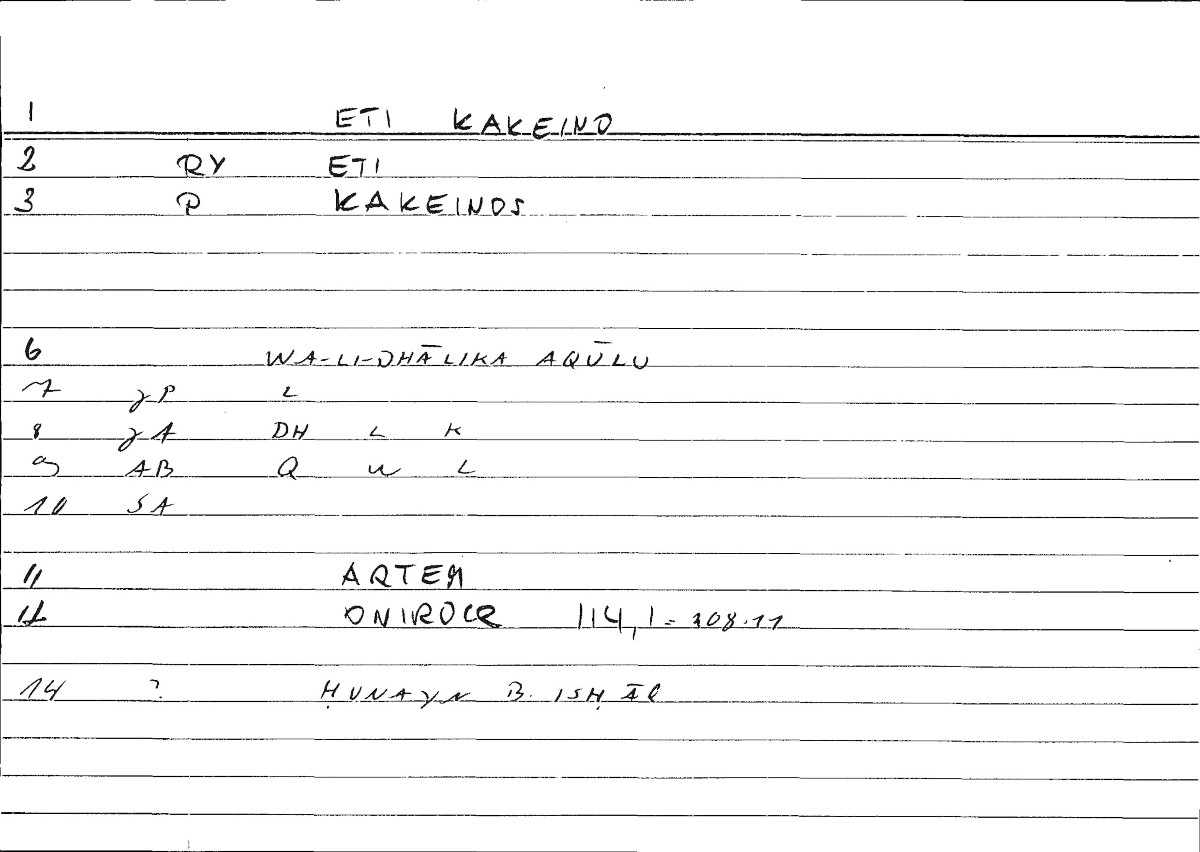 1 ETI KAKEINO
2 RY ETI
3 P KAKEINOS
6 WA-LI-DHĀLIKA AQŪLU
7 yP L
8 yA DH L K
9 AB Q W L
10 SA
11 ARTEM
12 ONIROCR 114,1 = 208.11
14 ? ḤUNAYN B. ISḤĀQ